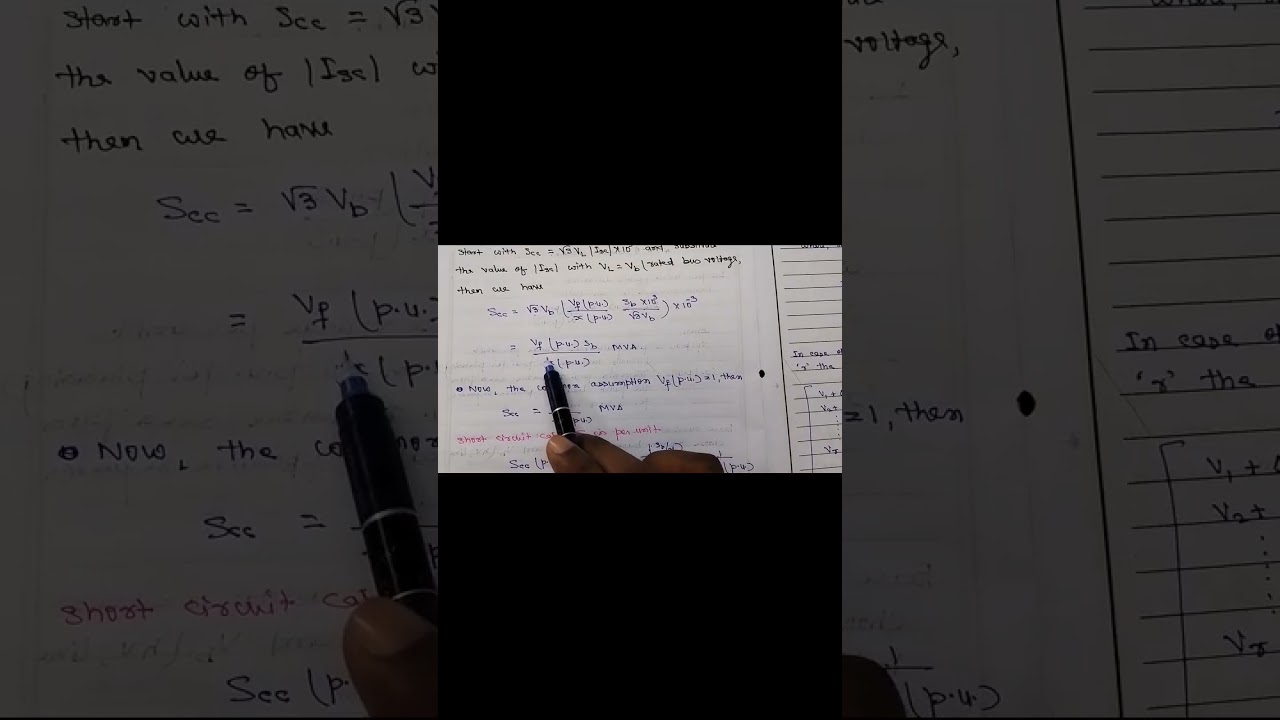 Start with Scc = √3 VL |Isc| × 10 and substitute
the value of |Isc| with VL = Vb (rated bus voltage,
then we have
Scc = √3 Vb ( Vf (p.u.) / x (p.u.) · Sb × 10³ / √3 Vb ) × 10⁻³
= Vf (p.u.) Sb / x (p.u.) MVA
• Now, the common assumption Vf (p.u.) = 1, then
Scc = MVA
short circuit
in per unit
Scc (p.
In case
'r' the
V1 +
V2 +
Vr